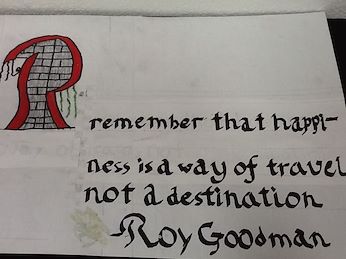 R remember that happi-
ness is a way of travel
not a destination
-Roy Goodman